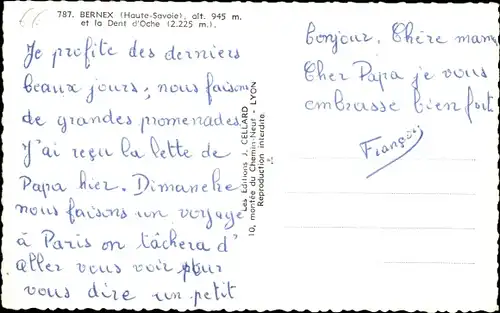 787. BERNEX (Haute-Savoie), alt. 945 m.
et la Dent d'Oche (2.225 m.).
Je profite des derniers
beaux jours; nous faisons
de grandes promenades.
J'ai reçu la lette de
Papa hier. Dimanche
nous faisons un voyage
à Paris on tâchera d'
aller vous voir pour
vous dire un petit
Les Éditions J. CELLARD
10, montée du Chemin-Neuf - LYON
Reproduction interdite.
bonjour. Chère mam
Cher Papa je vous
embrasse bien fort
François